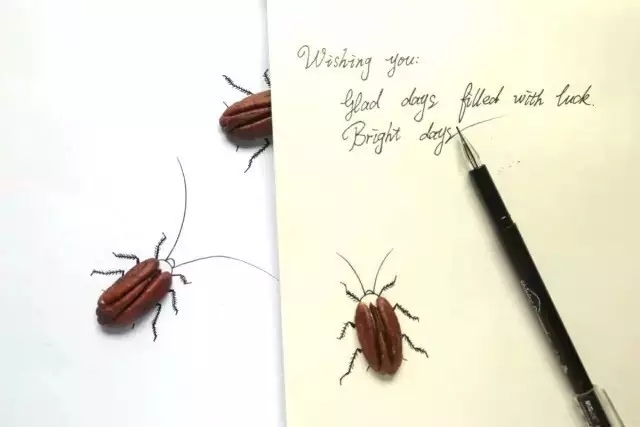 Wishing you:
Glad days filled with luck.
Bright days